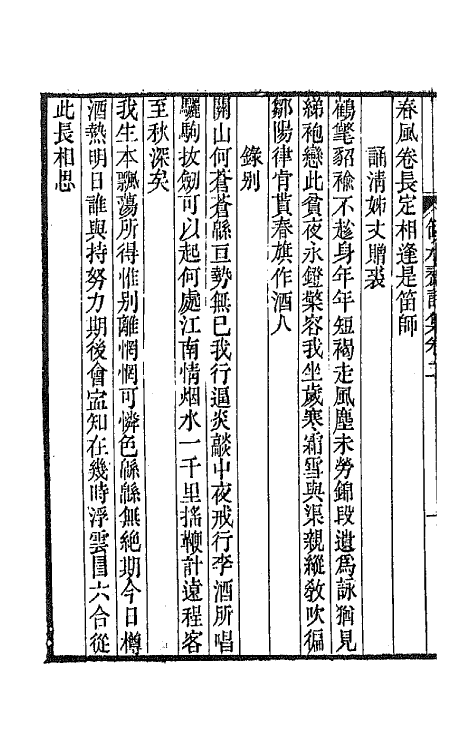 春風卷長定相逢是笛師
誦清姊丈贈裘
鶴氅貂襜不趁身年年短褐走風塵未勞錦段遺爲詠猶見
綈袍戀此貧夜永鐙檠容我坐歲寒霜雪與渠親縱敎吹徧
鄒陽律肯貰春旗作酒人
錄别
關山何蒼蒼緜亘勢無已我行逼炎歊中夜戒行李酒所唱
驪駒故劒可以起何處江南情烟水一千里搖鞭計遠程客
至秋深矣
我生本飄蕩所得惟别離惘惘可憐色緜緜無絶期今日樽
酒熱明日誰與持努力期後會寍知在幾時浮雲冒六合從
此長相思